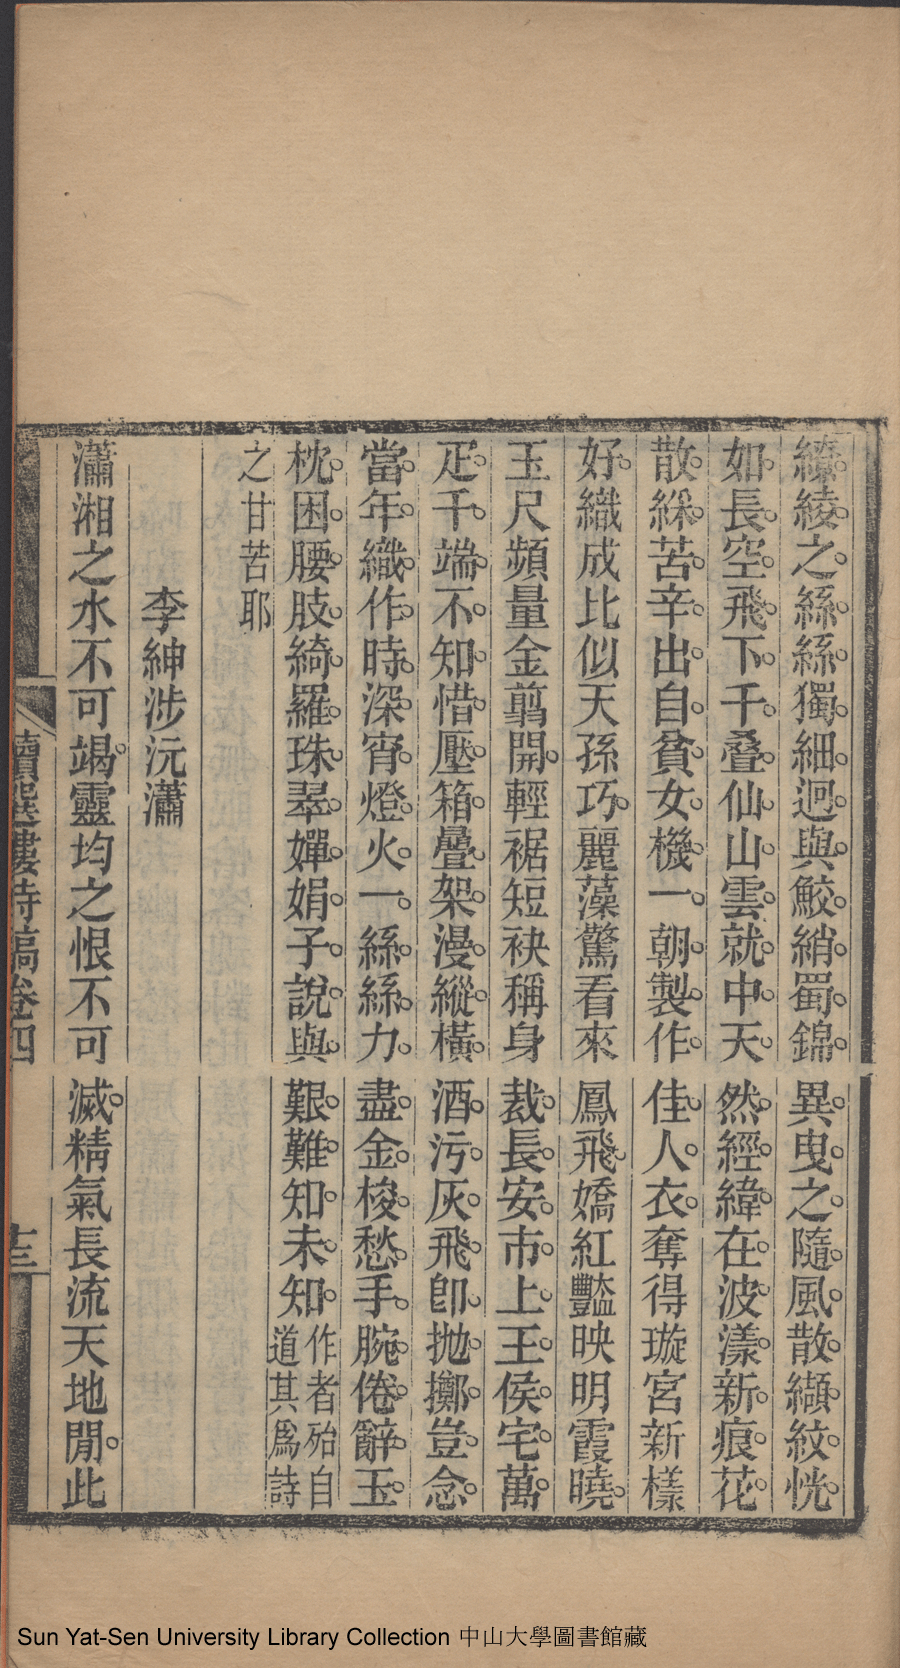 繚綾之絲絲獨細迥與鮫綃蜀錦異曳之隨風散纈紋恍
如長空飛下千叠仙山雲就中天然經緯在波漾新痕花
散綵苦辛出自貧女機一朝製作佳人衣奪得璇宮新樣
好織成比似天孫巧麗藻驚看來鳳飛嬌紅豔映明霞曉
玉尺頻量金翦開輕裾短袂稱身裁長安市上王侯宅萬
疋千端不知惜壓箱疊架漫縱橫酒污灰飛卽抛擲豈念
當年織作時深宵燈火一絲絲力盡金梭愁手腕倦辭玉
枕困腰肢綺羅珠翠嬋娟子說與艱難知未知作者殆自道其爲詩
之甘苦耶
李紳涉沅瀟
瀟湘之水不可竭靈均之恨不可滅精氣長流天地閒此
讀選樓詩稿卷四
十三
Sun Yat-Sen University Library Collection 中山大學圖書館藏